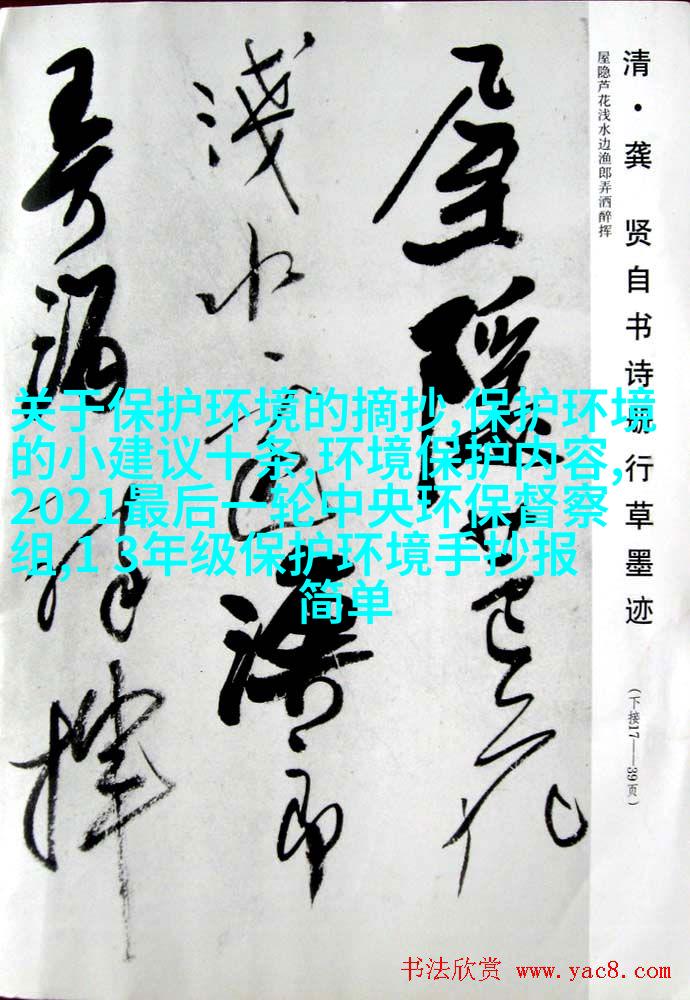 清·龚 贤自书诗行草墨迹
屋隐芦花浅水边渔郎弄洒醉挥
(下接17——39页)
屋隱芦花
淺水邊漁郎
弄洒醉揮
关于保护环境的摘抄,保护环境
的小建议十条,环境保护内容,
2021最后一轮中央环保督察
组,1 3年级保护环境手抄报
简单
书法欣赏 www.yac8.com